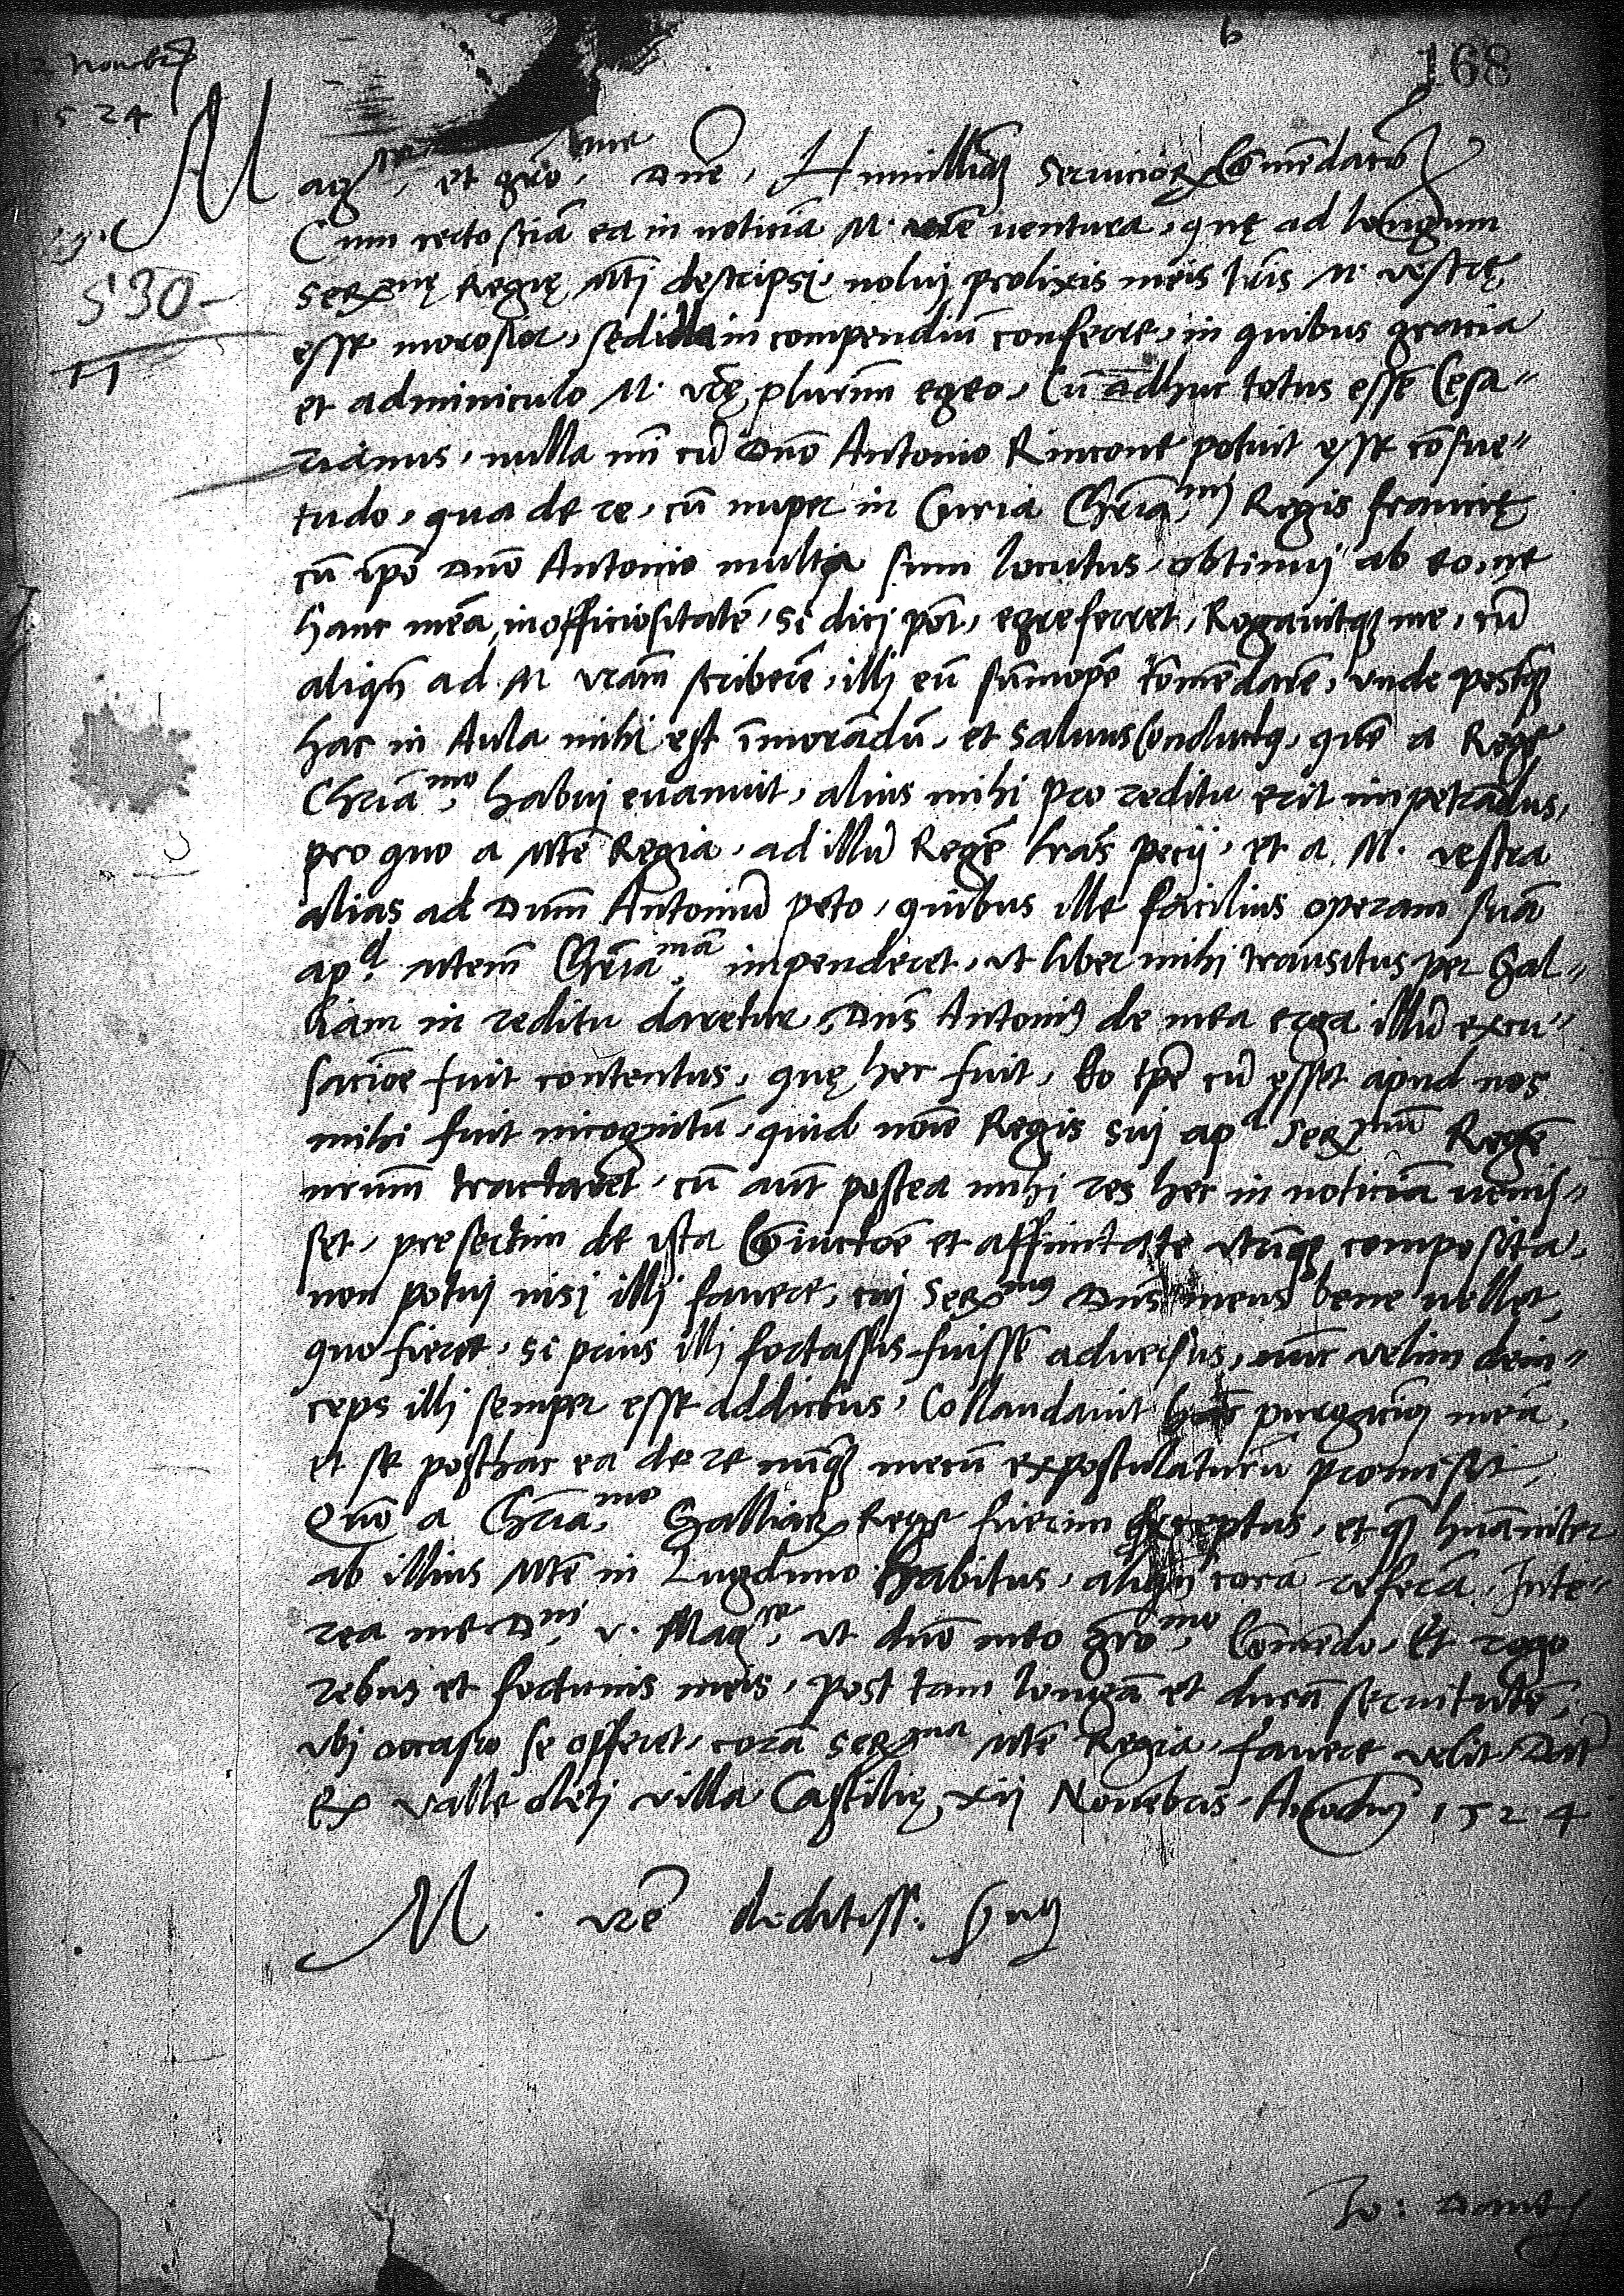 12 Nouebr
1524
b
168
Mag.ce et gr͞o.me Dn͞e, Humillīa servicior͞ Co͞mendac͞o
Cum certo sciā ea in noticiā M. vr͞e ventura, quę ad longum
Ser.mę Regię Mt͞i descripsi, nolui prolixis meis l͞ris M. vestrę
esse morosior, sed illa in compendiū conferre, in quibus gratia
et adminiculo M. vr͞ę plurimū egeo. Cū adhuc totus essē Cesa"
rianus, nulla m͞i cū Dn͞o Antonio Rincone potuit esse co͞sue"
tudo, qua de re, cū nuper in Curia Chr͞ia.mi Regis francię
cū ip͞o Dn͞o Antonio multa sum locutus, obtinui ab eo, ne
hanc meā inofficiositatē, si dici po͞t, egre ferret, Rogavitq me, cū
aliqn͞ ad M vr͞am scriberē, illi eū sūmope͞ co͞mendarē, vnde postq
hac in Aula mihi est īmorādū, et saluus Conductus, quē a Rege
Chr͞ia.mo habui euanuit, alius mihi pro reditu erit impetrādus,
pro quo a Mt͞e Regia, ad illū Regē l͞ras petij, et a M. vestra
alias ad Dn͞m Antoniū peto, quibus ille facilius operam suā
ap.d Mt͞em Chr͞ia.mā impenderet, vt liber mihi transitus per Gal"
liam in reditu daretur. Dn͞s Antoni9 de mea erga illū excu"
sacio͞e fuit contentus, quę hec fuit, Eo tp͞e cū esset apud nos
mihi fuit incognitū, quid no͞ie Regis sui ap.d Ser.mū Regē
nr͞um tractaret, cū aut͞ postea mihi res hec in noticiā venis"
set, presertim de ista Co͞iunctio͞e et affinitate vtrinq composita,
non potui nisi illi favere, cui Ser.mus Dn͞s meus bene vellet,
quo fieret, si prius illi fortassis fuissē aduersus, nunc velim dein"
ceps illi semper esse addictus, Collaudavit hāc purgacio͞ meā,
et se posthac ea de re nūq mecū expostulaturū promisit,
Quo͞ a Chr͞ia.mo Galliar͞ Rege fuerim exceptus, et q͞ hūaniter
ab illius Mt͞e in Lugduno habitus, aliqn͞ corā referā. Inte"
rea me D.ni v. Mag.ce, vt dn͞o meo gr͞o.mo Co͞mendo, Et rogo
rebus et fortunis meis, post tam longā et durā servitutē,
vbi occasio se offeret, corā Ser.ma Mt͞e Regia, favere velit. Dat͞
Ex Valle oleti villa Castilię, xij Nouēbris Anno dn͞i 1524
M. vr͞e deditiss. s͞rus
Jo: Dant
530